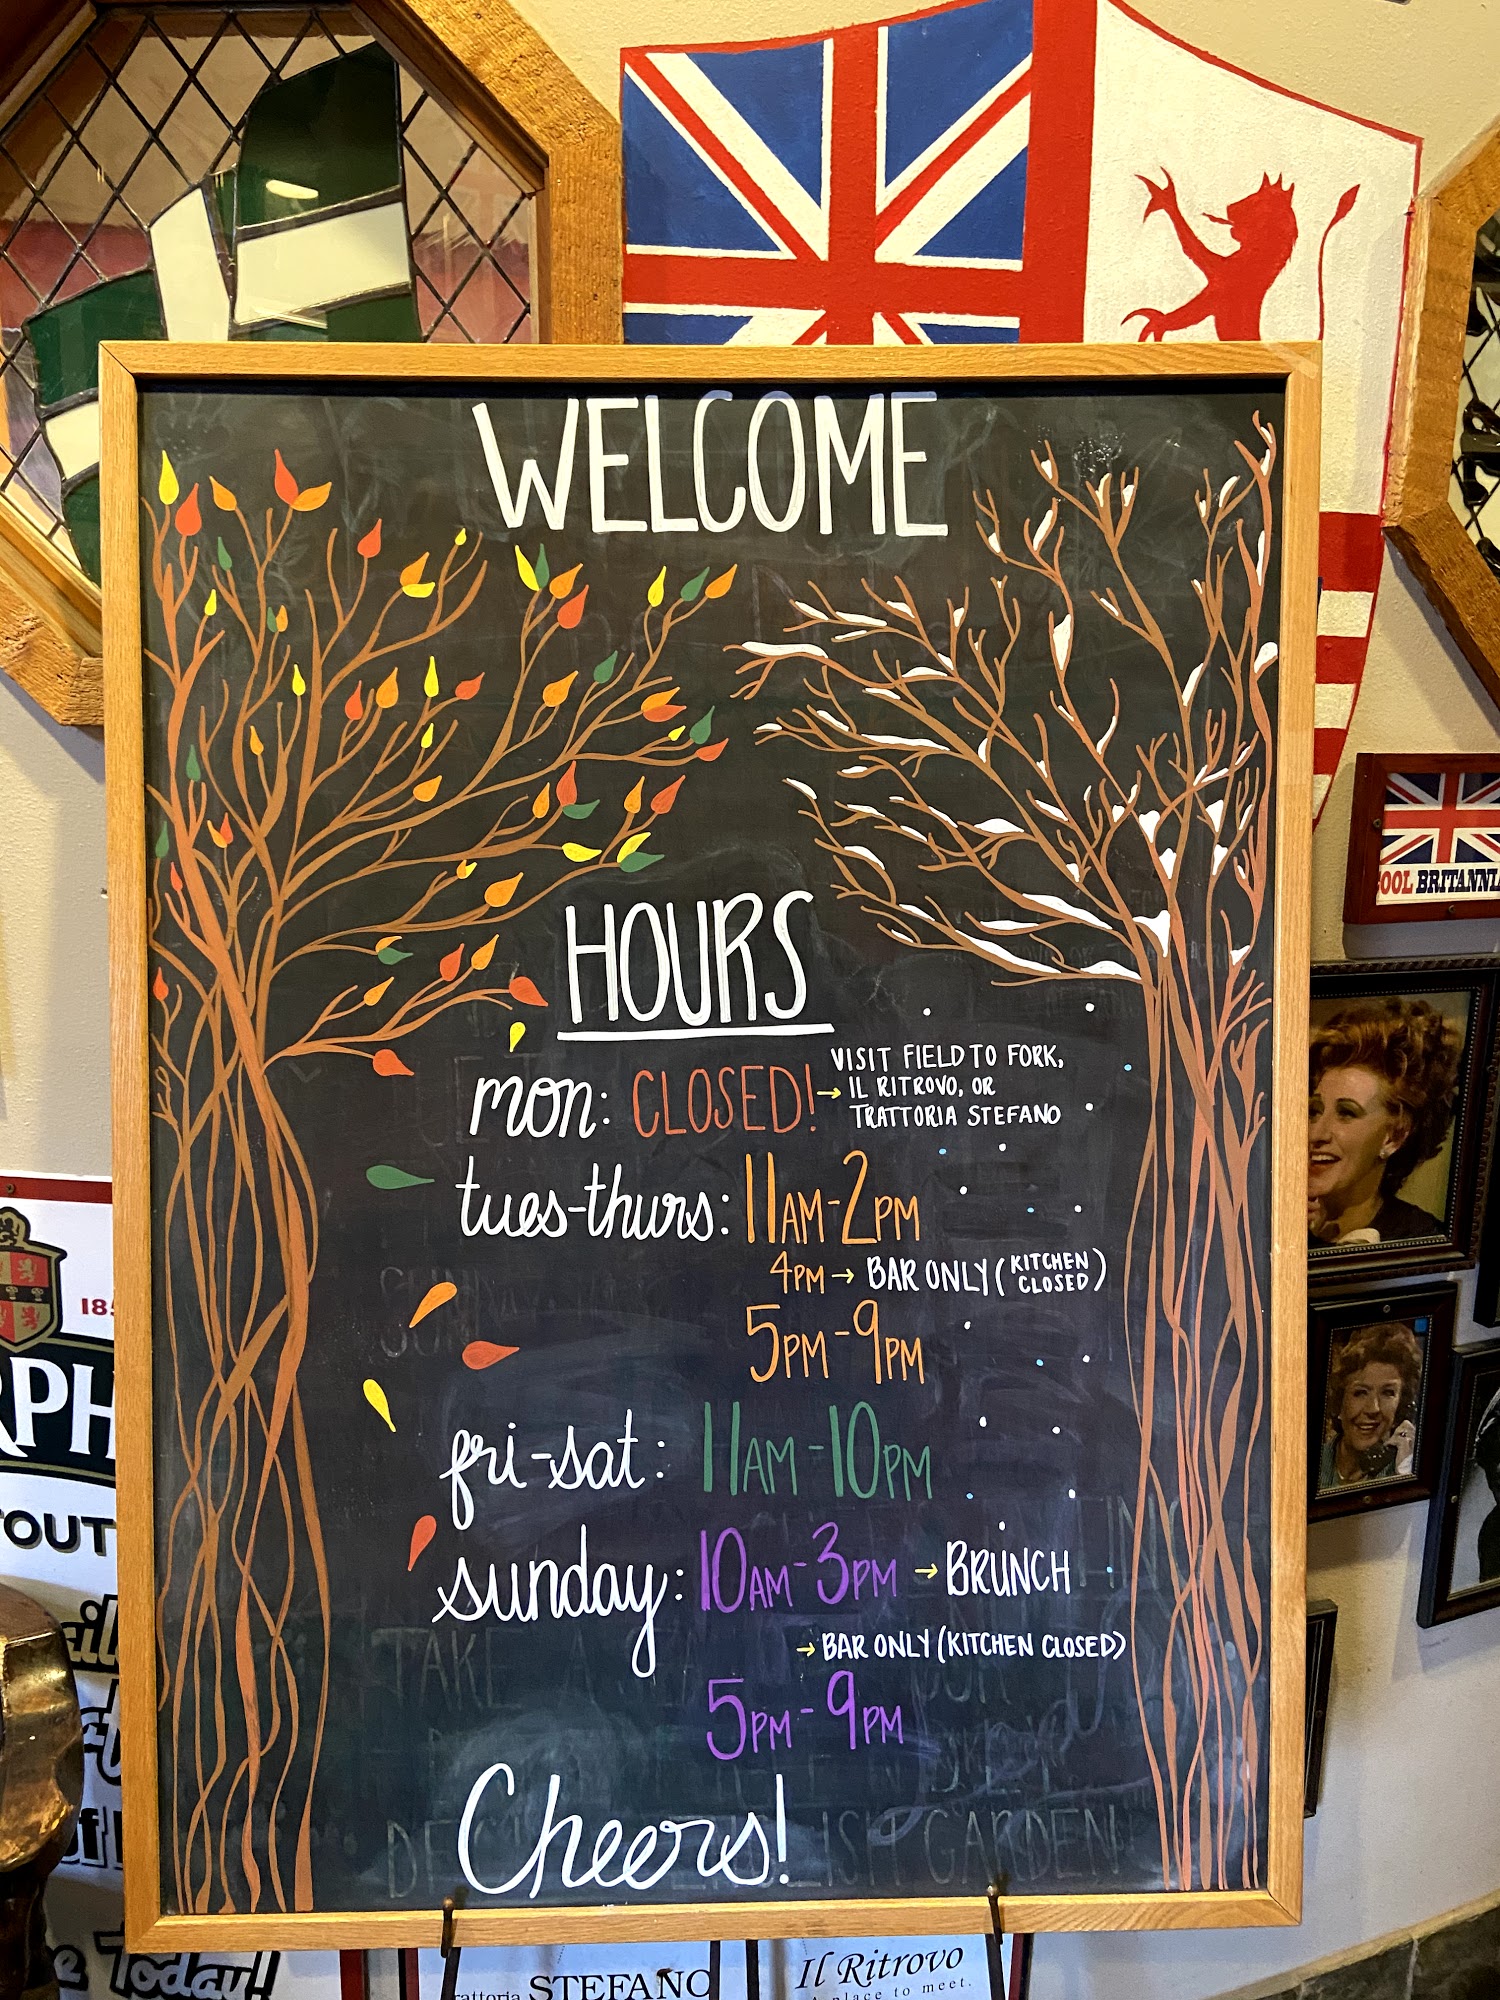 WELCOME
HOURS
mon: CLOSED! → VISIT FIELD TO FORK,
IL RITROVO, OR
TRATTORIA STEFANO
tues-thurs: 11AM-2PM
4PM → BAR ONLY (KITCHEN
CLOSED)
5PM-9PM
fri-sat: 11AM-10PM
sunday: 10AM-3PM → BRUNCH
→ BAR ONLY (KITCHEN CLOSED)
5PM-9PM
Cheers!
OOL BRITANNIA
185
RPH
TOUT
Today!
rattoria STEFANO
Il Ritrovo
A place to meet.
TAKE A
ISH GARDEN